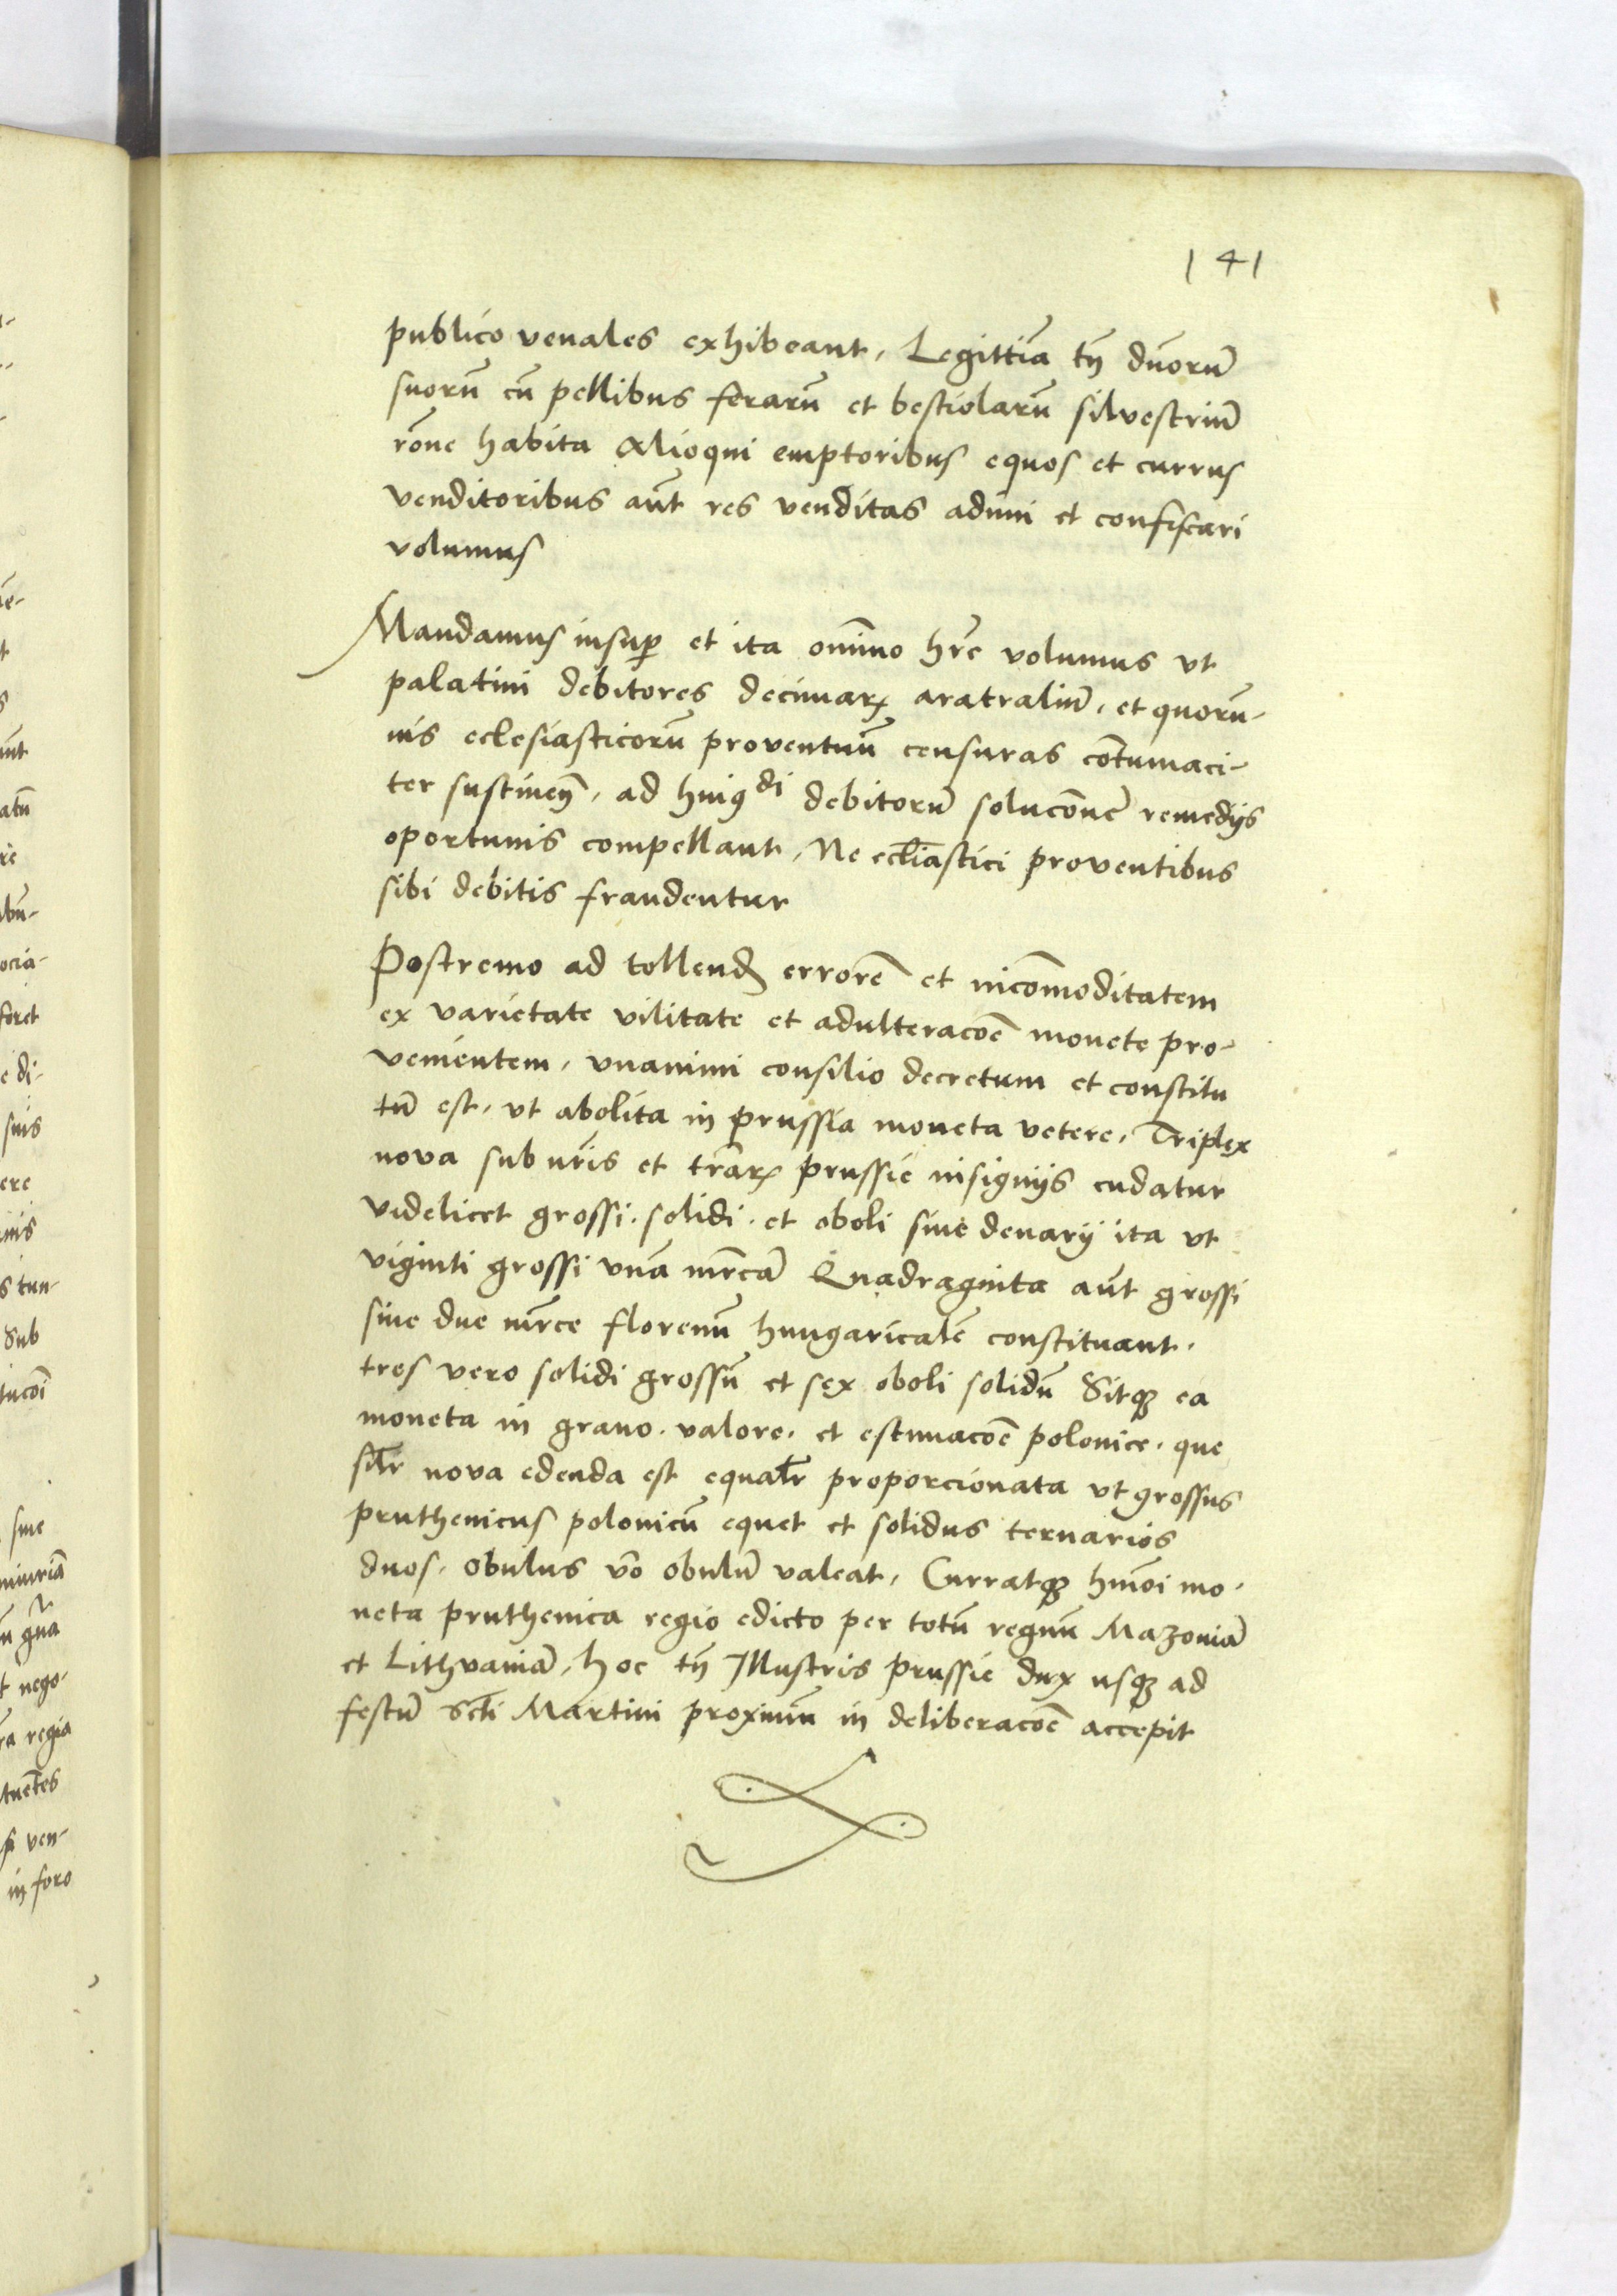 141
publico venales exhibeant, Legittiā tn̄ dn̄orū
suorū cū pellibus ferarū et bestiolarū silvestriū
rōne habita Alioqui emptoribus equos et currus
venditoribus aūt res venditas adimi et confiscari
volumus
Mandamus insup̱ et ita om̄ino hr̄e volumus vt
palatini debitores decimaꝝ aratraliū, et quorū-
nis eclesiasticorū proventuū censuras cōtumaci-
ter sustinen̄, ad huiꝰdi debitorū solucōnē remedijs
oportunis compellant, Ne ecl̄iastici proventibus
sibi debitis fraudentur
Postremo ad tollend errorē et incōmoditatem
ex varietate vilitate et adulteracōē monete pro-
venientem, vnanimi consilio decretum et constitu
tū est, vt abolita in prussia moneta vetere, Triplex
nova sub nr̄is et tr̄aꝝ prussie insignijs cudatur
videlicet grossi. solidi. et oboli sive denarij ita vt
viginti grossi vnā mr̄cā Quadraginta aūt grossi
sive due mr̄ce florenū hungaricalē constituant.
tres vero solidi grossū et sex oboli solidū Sitqꝫ ea
moneta in grano. valore. et estimacōē polonice. que
sil̄r nova edenda est equal̄r proporcionata vt grossus
pruthenicus polonicū equet et solidus ternarios
duos. obulus v̄o obulū valeat, Curratqꝫ hmōi mo-
neta pruthenica regio edicto per totū regnū Mazoviā
et Lithvaniā, hoc tn̄ Illustris prussie dux usqꝫ ad
festū Sct̄i Martini proximū in deliberacōē accepit